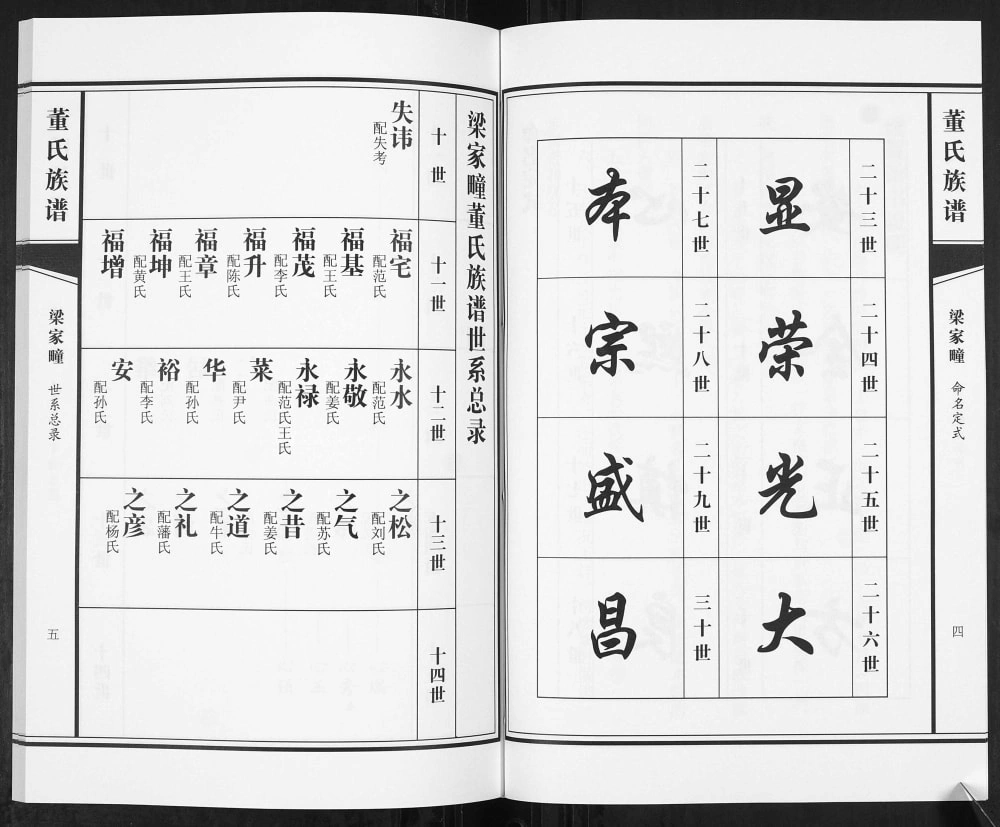 董氏族谱
梁家疃
命名定式
四
二十三世
显
二十四世
荣
二十五世
光
二十六世
大
二十七世
本
二十八世
宗
二十九世
盛
三十世
昌
梁家疃董氏族谱世系总录
十世
失讳
配失考
十一世
福宅
配范氏
福基
配王氏
福茂
配李氏
福升
配陈氏
福章
配王氏
福坤
配黄氏
福增
十二世
永水
配范氏
永敬
配姜氏
永禄
配范氏王氏
菜
配尹氏
华
配孙氏
裕
配李氏
安
配孙氏
十三世
之松
配刘氏
之气
配苏氏
之昔
配姜氏
之道
配牛氏
之礼
配藩氏
之彦
配杨氏
十四世
董氏族谱
梁家疃
世系总录
五